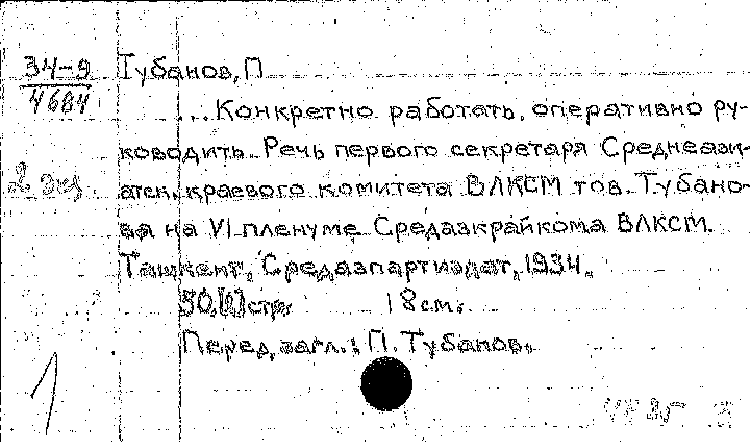 34-9
4684
Тубанов, П
... Конкретно работать, оперативно ру-
ководить. Речь первого секретаря Среднеази-
атск. краевого комитета ВЛКСМ тов. Тубано-
ва на VI пленуме Средазкрайкома ВЛКСМ.
2 экз
Ташкент, Средазпартиздат, 1934.
50,[1] стр. 18 см.
Перед загл.: П. Тубанов.
1